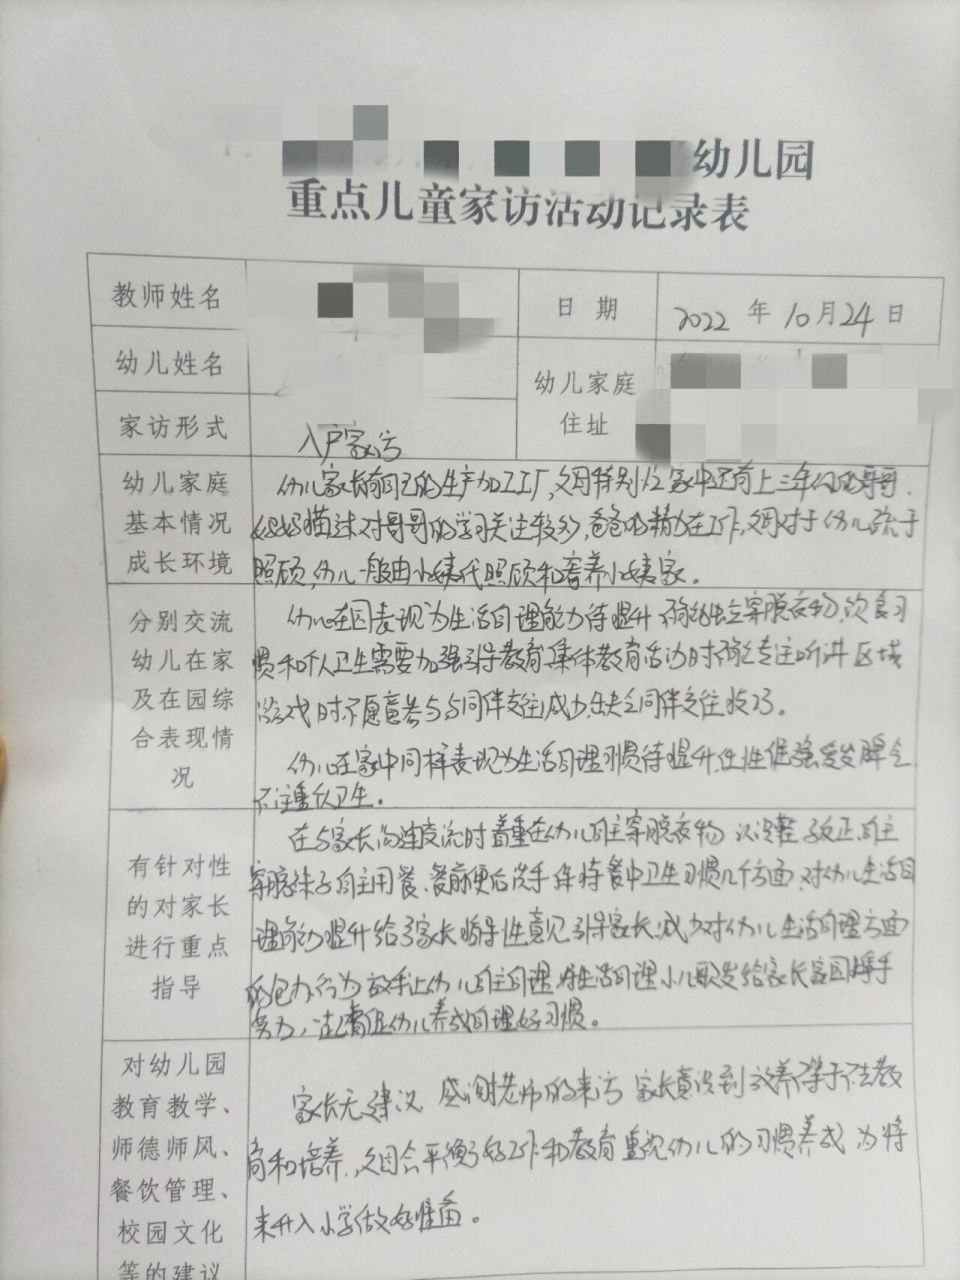 幼儿园
重点儿童家访活动记录表
教师姓名
日 期
2022 年 10月24日
幼儿姓名
幼儿家庭
住址
家访形式
入户家访
幼儿家庭
基本情况
成长环境
幼儿家长有自己的生产加工厂,父母特别忙家中还有上三年级的哥哥.
妈妈描述对哥哥的学习关注较多,爸爸的精力在工作,父母对于幼儿疏于
照顾,幼儿一般由小姨代照顾和寄养小姨家。
分别交流
幼儿在家
及在园综
合表现情
况
幼儿在园表现为生活自理能力待提升 不能独立穿脱衣物,饮食习
惯和个人卫生需要加强引导教育,集体教育活动时不能专注听讲 区域
游戏时不愿意参与与同伴交往成功,缺乏同伴交往技巧。
幼儿在家中同样表现为生活自理习惯待提升,任性倔强爱发脾气
不注重个人卫生。
有针对性
的对家长
进行重点
指导
在与家长沟通交流时着重在幼儿自主穿脱衣物 认识鞋子反正,自主
穿脱袜子自主用餐、餐前便后洗手 保持餐中卫生习惯几个方面,对幼儿生活自
理能力提升给了家长指导性意见,引导家长,减少对幼儿生活自理方面
的包办行为 放手让幼儿自主自理,将生活自理小儿歌发给家长家园携手
努力,达情促幼儿养成自理好习惯。
对幼儿园
教育教学、
师德师风、
餐饮管理、
校园文化
等的建议
家长无建议 感谢老师的来访 家长意识到放养等于不去教
育和培养,父母会平衡了好工作和教育重视幼儿的习惯养成 为将
来升入小学做好准备。